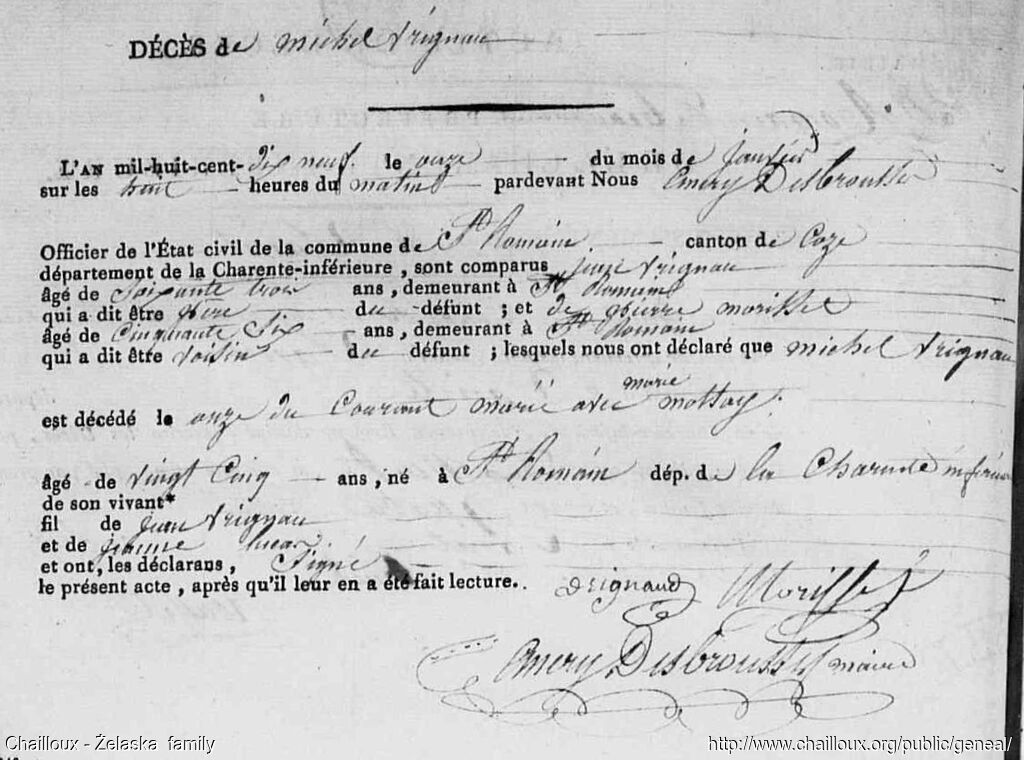 DÉCÈS de michel Vrignau
L'AN mil-huit-cent-dix neuf. le onze du mois de janvier
sur les huit heures du matin pardevant Nous Emery Desbrousses
Officier de l'État civil de la commune de St Romain. canton de Coze
département de la Charente-inférieure, sont comparus jean Vrignau
âgé de Soixante trois ans, demeurant à St Romain
qui a dit être père du défunt ; et de pierre morisset
âgé de Cinquante Six ans, demeurant à St Romain
qui a dit être voisin du défunt ; lesquels nous ont déclaré que michel Vrignau
est décédé le onze du Courant marié avec marie mottay.
âgé de vingt Cinq ans, né à St Romain dép. de la Charente inférieure
de son vivant*
fil de jean Vrignau
et de jeanne
et ont, les déclarans, Signé
le présent acte, après qu'il leur en a été fait lecture.. Vrignaud Morisset
Emery Desbrousses maire
Chailloux - Żelaska family
http://www.chailloux.org/public/geneal/